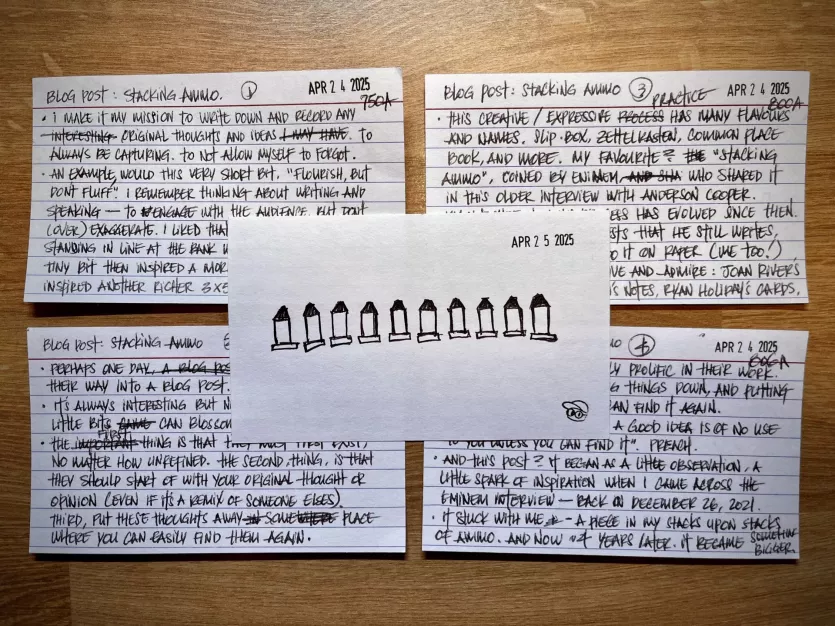 BLOG POST: STACKING AMMO. 1 APR 24 2025
750A
• I MAKE IT MY MISSION TO WRITE DOWN AND RECORD ANY
INTERESTING ORIGINAL THOUGHTS AND IDEAS I MAY HAVE. TO
ALWAYS BE CAPTURING. TO NOT ALLOW MYSELF TO FORGET.
• AN EXAMPLE, WOULD THIS VERY SHORT BIT, "FLOURISH, BUT
DON'T FLUFF". I REMEMBER THINKING ABOUT WRITING AND
SPEAKING — TO ENGAGE WITH THE AUDIENCE, BUT DON'T
(OVER) EXAGGERATE. I LIKED THAT
STANDING IN LINE AT THE BANK
TINY BIT THEN INSPIRED A
INSPIRED ANOTHER RICHER
BLOG POST: STACKING AMMO 3 APR 24 2025
800A
PRACTICE
• THIS CREATIVE / EXPRESSIVE PROCESS HAS MANY FLAVOURS
AND NAMES. SLIP-BOX, ZETTELKASTEN, COMMON PLACE
BOOK, AND MORE. MY FAVOURITE? THE "STACKING
AMMO", COINED BY EMINEM, AND SHA WHO SHARED IT
IN THIS OLDER INTERVIEW WITH ANDERSON COOPER.
HAS EVOLVED SINCE THEN.
THAT HE STILL WRITES,
IT ON PAPER (LIKE TOO!)
AND ADMIRE: JOAN RIVER'S
NOTES, RYAN HOLIDAY'S CARDS,
APR 25 2025
BLOG POST: STACKING AMMO
• PERHAPS ONE DAY, A BLOG
THEIR WAY INTO A BLOG POST.
• IT'S ALWAYS INTERESTING BUT
LITTLE BITS CAN BLOSSOM
FIRST
• THE IMPORTANT THING IS THAT THEY MUST FIRST EXIST,
NO MATTER HOW UNREFINED. THE SECOND THING, IS THAT
THEY SHOULD START OF WITH YOUR ORIGINAL THOUGHT OR
OPINION (EVEN IF IT'S A REMIX OF SOMEONE ELSES).
THIRD, PUT THESE THOUGHTS AWAY IN SOMEWHERE PLACE
WHERE YOU CAN EASILY FIND THEM AGAIN.
4 APR 24 2025
PROLIFIC IN THEIR WORK.
THINGS DOWN, AND PUTTING
CAN FIND IT AGAIN.
A GOOD IDEA IS OF NO USE
TO YOU UNLESS YOU CAN FIND IT". PREACH.
• AND THIS POST? IT BEGAN AS A LITTLE OBSERVATION, A
LITTLE SPARK OF INSPIRATION WHEN I CAME ACROSS THE
EMINEM INTERVIEW — BACK ON DECEMBER 26, 2021.
• IT STUCK WITH ME — A PIECE IN MY STACKS UPON STACKS
OF AMMO. AND NOW ~4 YEARS LATER. IT BECAME SOMETHING
BIGGER.